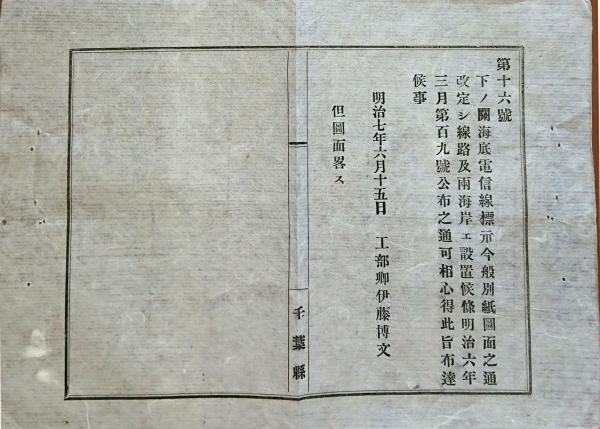 第十六號
下ノ關海底電信線標示今般別紙圖面之通
改定シ線路及兩海岸エ設置候條明治六年
三月第百九號公布之通可相心得此旨布達
候事
明治七年六月十五日 工部卿伊藤博文
但圖面畧ス
千葉縣